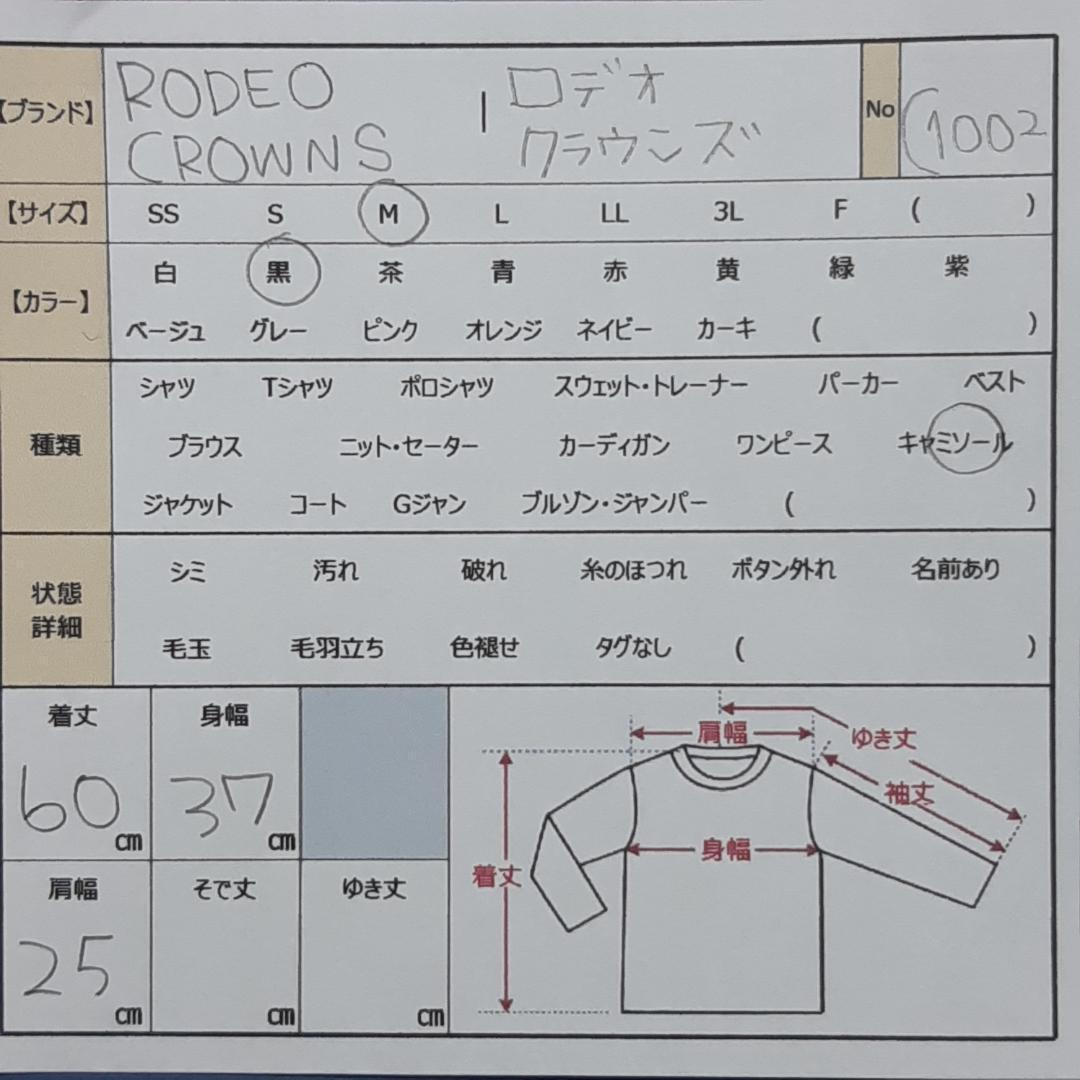 【ブランド】 RODEO CROWNS | ロデオ クラウンズ No (1002
【サイズ】 SS S M L LL 3L F ( )
【カラー】 白 黒 茶 青 赤 黄 緑 紫
ベージュ グレー ピンク オレンジ ネイビー カーキ ( )
種類 シャツ Tシャツ ポロシャツ スウェット・トレーナー パーカー ベスト
ブラウス ニット・セーター カーディガン ワンピース キャミソール
ジャケット コート Gジャン ブルゾン・ジャンパー ( )
状態詳細 シミ 汚れ 破れ 糸のほつれ ボタン外れ 名前あり
毛玉 毛羽立ち 色褪せ タグなし ( )
着丈 身幅
60cm 37cm
肩幅 そで丈 ゆき丈
25cm cm cm
肩幅 ゆき丈
袖丈
身幅
着丈